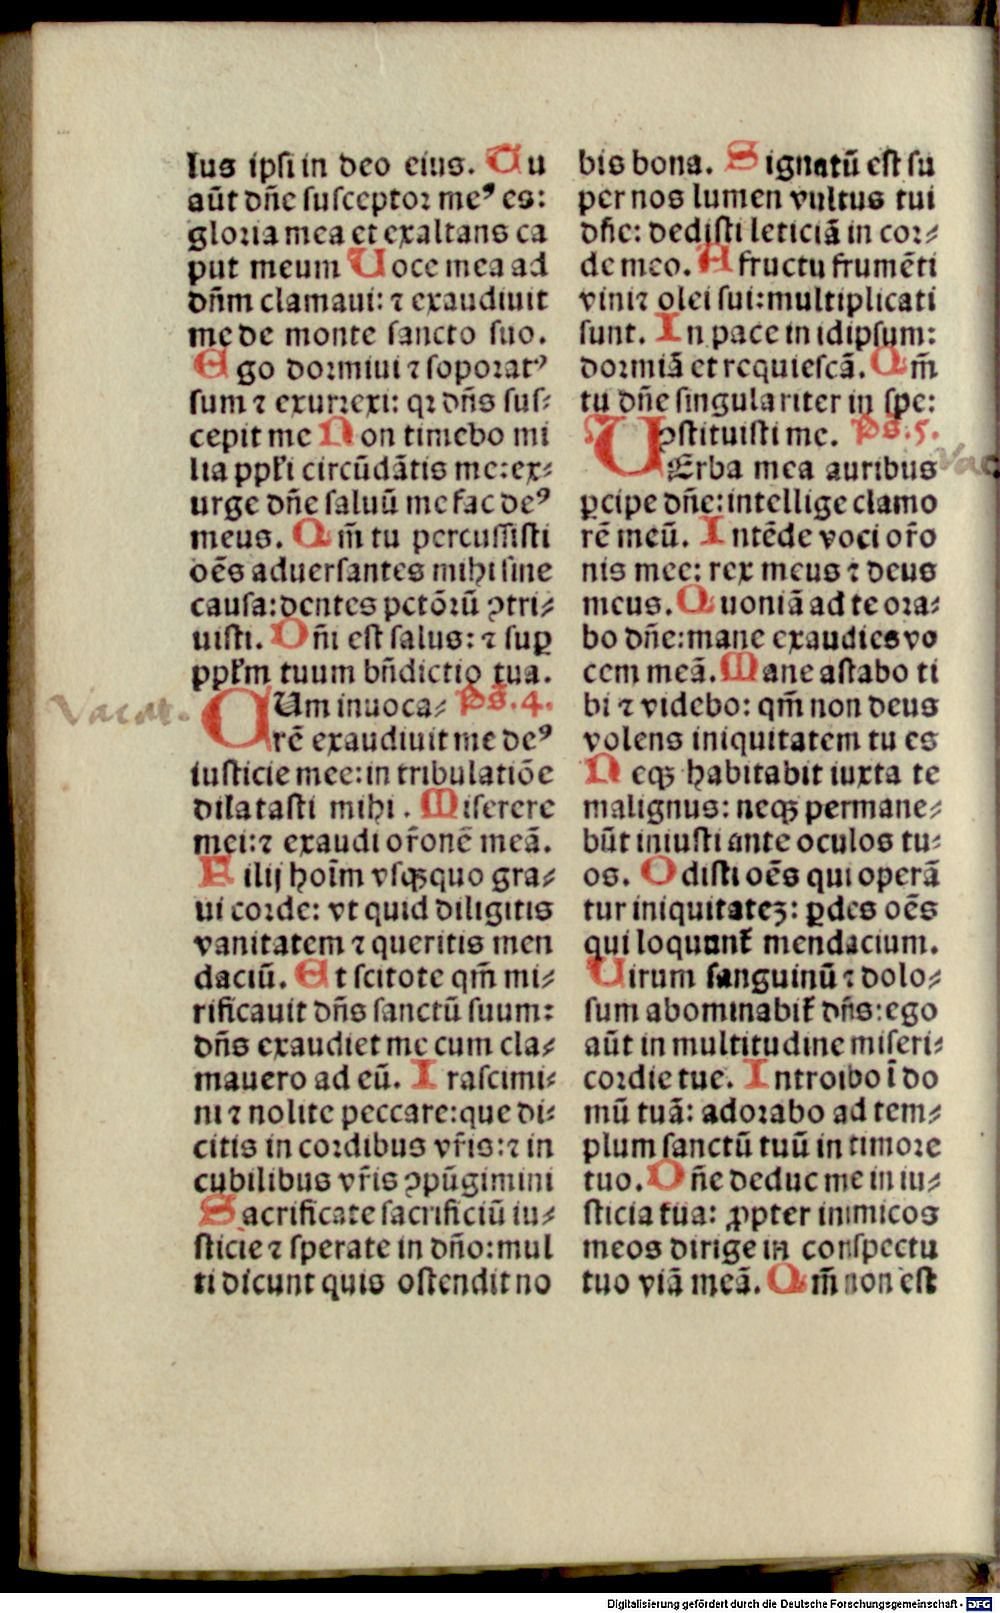 lus ipsi in deo eius. Tu
aūt dn̄e susceptor meꝰ es:
gloria mea et exaltans ca
put meum Uoce mea ad
dn̄m clamaui: ⁊ exaudiuit
me de monte sancto suo.
Ego dormiui ⁊ soporatꝰ
sum ⁊ exurrexi: qꝛ dn̄s sus⸗
cepit me Non timebo mi
lia ppl̄i circūdātis me: ex⸗
urge dn̄e saluū me fac deꝰ
meus. Qm̄ tu percussisti
oēs aduersantes mihi sine
causa: dentes pctōrū ꝯtri⸗
uisti. Dn̄i est salus: ⁊ suꝑ
ppl̄m tuum bn̄dictio tua.
CUm inuoca⸗ Ps̄.4.
Vacat.
rē exaudiuit me deꝰ
iusticie mee: in tribulatiōe
dilatasti mihi. Miserere
mei: ⁊ exaudi or̄onē meā.
Filij hoīm vsqꝫquo gra⸗
ui corde: vt quid diligitis
vanitatem ⁊ queritis men
daciū. Et scitote qm̄ mi⸗
rificauit dn̄s sanctū suum:
dn̄s exaudiet me cum cla⸗
mauero ad eū. Irascimi⸗
ni ⁊ nolite peccare: que di⸗
citis in cordibus vr̄is: ⁊ in
cubilibus vr̄is ꝯpūgimini
Sacrificate sacrificiū iu⸗
sticie ⁊ sperate in dn̄o: mul
ti dicunt quis ostendit no
bis bona. Signatū est su
per nos lumen vultus tui
dn̄e: dedisti leticiā in cor⸗
de meo. A fructu frumēti
vini ⁊ olei sui: multiplicati
sunt. In pace in idipsum:
dormiā et requiescā. Qm̄
tu dn̄e singulariter in spe:
ꝯstituisti me. Ps̄.5.
Vac.
UErba mea auribus
ꝑcipe dn̄e: intellige clamo
rē meū. Intēde voci or̄o
nis mee: rex meus ⁊ deus
meus. Quoniā ad te ora⸗
bo dn̄e: mane exaudies vo
cem meā. Mane astabo ti
bi ⁊ videbo: qm̄ non deus
volens iniquitatem tu es
Neqꝫ habitabit iuxta te
malignus: neqꝫ permane⸗
būt iniusti ante oculos tu⸗
os. Odisti oēs qui operā
tur iniquitatez: ꝑdes oēs
qui loquunt᷑ mendacium.
Uirum sanguinū ⁊ dolo⸗
sum abominabit᷑ dn̄s: ego
aūt in multitudine miseri⸗
cordie tue. Introibo ī do
mū tuā: adorabo ad tem⸗
plum sanctū tuū in timore
tuo. Dn̄e deduc me in iu⸗
sticia tua: ꝓpter inimicos
meos dirige in conspectu
tuo viā meā. Qm̄ non est
Digitalisierung gefördert durch die Deutsche Forschungsgemeinschaft - DFG